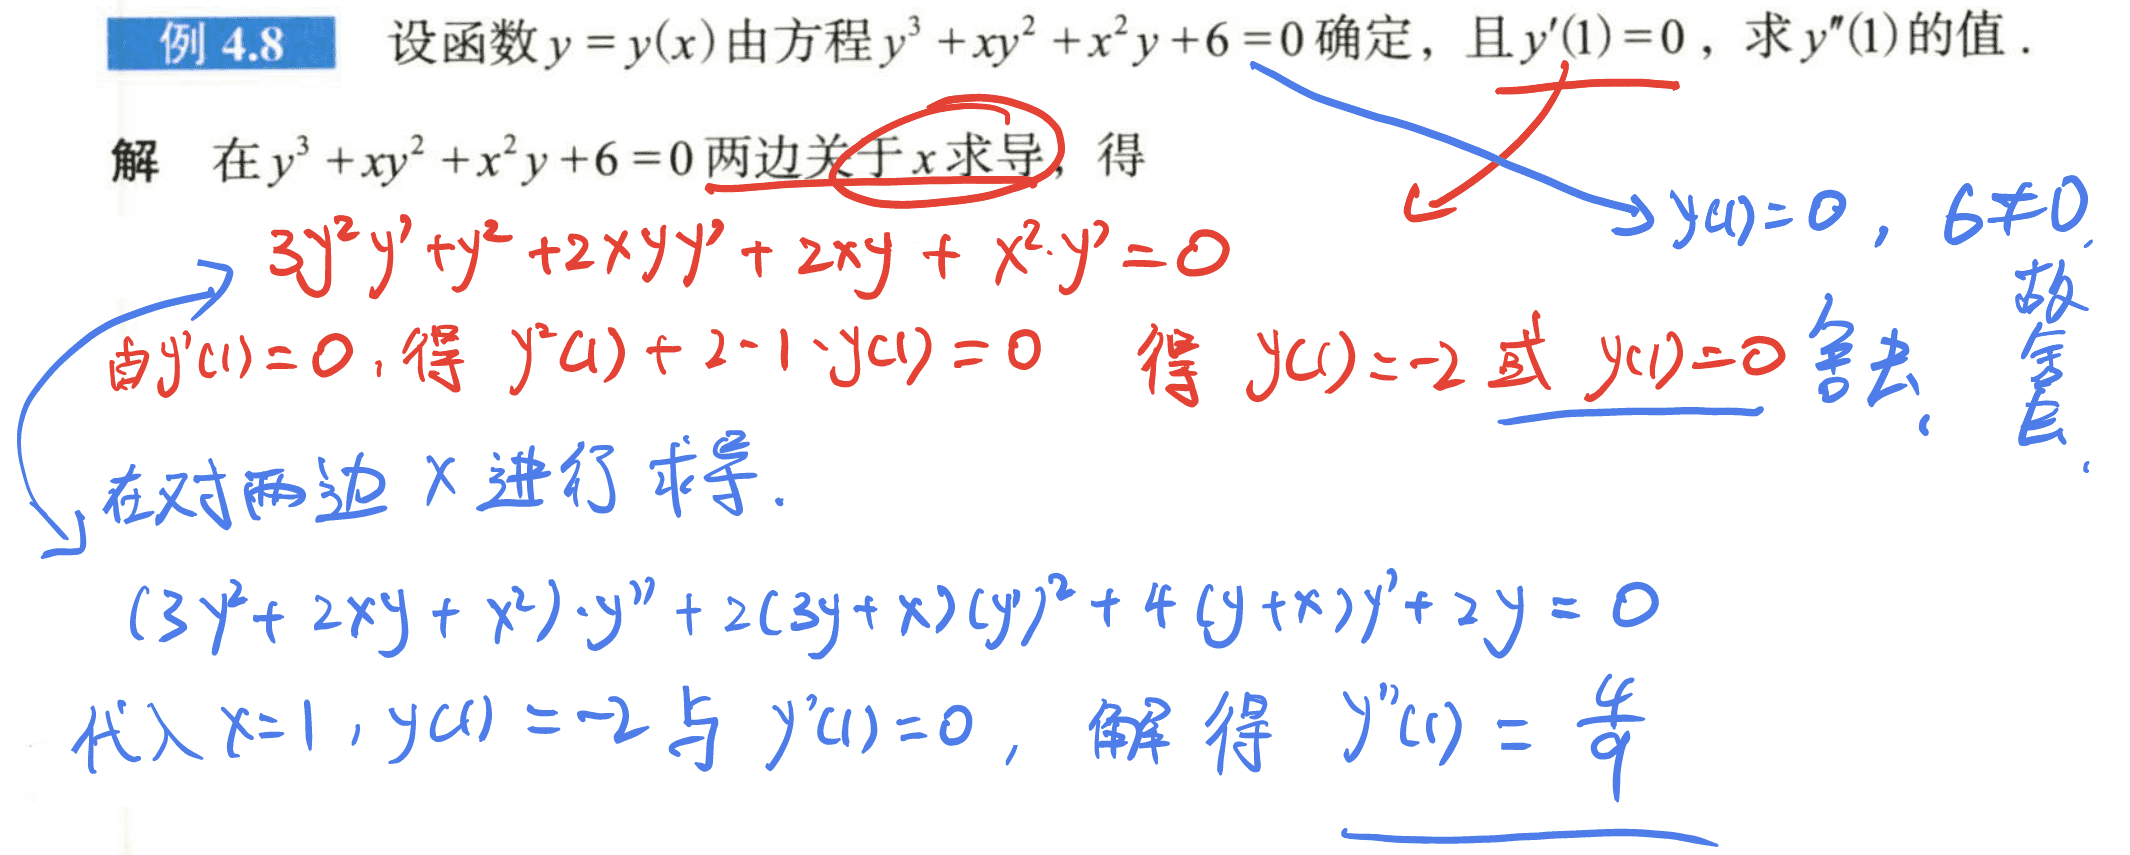 例 4.8 设函数 y = y(x) 由方程 y³ + xy² + x²y + 6 = 0 确定，且 y′(1) = 0，求 y″(1) 的值．
解 在 y³ + xy² + x²y + 6 = 0 两边关于 x 求导，得
y(1) = 0，6≠0，故舍去．
3y²y′ + y² + 2xyy′ + 2xy + x²·y′ = 0
由 y′(1) = 0，得 y²(1) + 2·1·y(1) = 0 得 y(1) = -2 或 y(1) = 0 舍去．
在对两边 x 进行求导．
(3y² + 2xy + x²)·y″ + 2(3y + x)(y′)² + 4(y + x)y′ + 2y = 0
代入 x = 1，y(1) = -2 与 y′(1) = 0，解得 y″(1) = 4/9